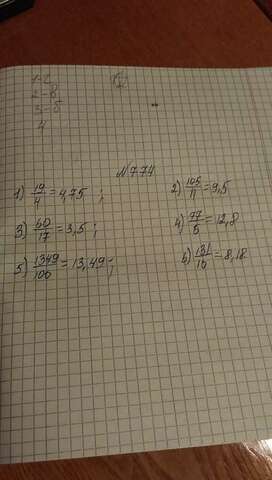 1-
2-8
3-6
4
N 774
1) 19/4 = 4,75 ; 2) 105/11 = 9,5
3) 60/17 = 3,5 ; 4) 77/6 = 12,8
5) 1349/100 = 13,49 ; 6) 131/16 = 8,18